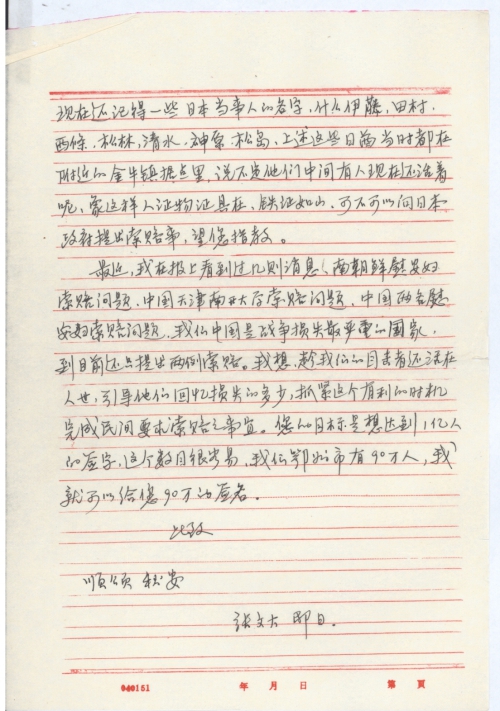 现在还记得一些日本当事人的名字,什么伊藤,田村,
西条,松林,清水,神原,松岛,上述这些日酋当时都在
附近的金牛镇据点里,说不定他们中间有人现在还活着
呢,象这样人证物证具在,铁证如山,可不可以向日本
政府提出索赔事,望您指教。
最近,我在报上看到过几则消息:南朝鲜慰安妇
索赔问题,中国天津南开大学索赔问题,中国两名慰
安妇索赔问题,我们中国是战争损失最严重的国家,
到目前还只提出两例索赔。我想,趁我们的目击者还活在
人世,引导他们回忆损失的多少,抓紧这个有利的时机
完成民间要求索赔之事宜。您的目标是想达到1亿人
的签字,这个数目很容易,我们鄂州市有90万人,我
就可以给您90万的签名。
此致
顺颂 秋安
张文大 即日.
040151 年 月 日 第 页